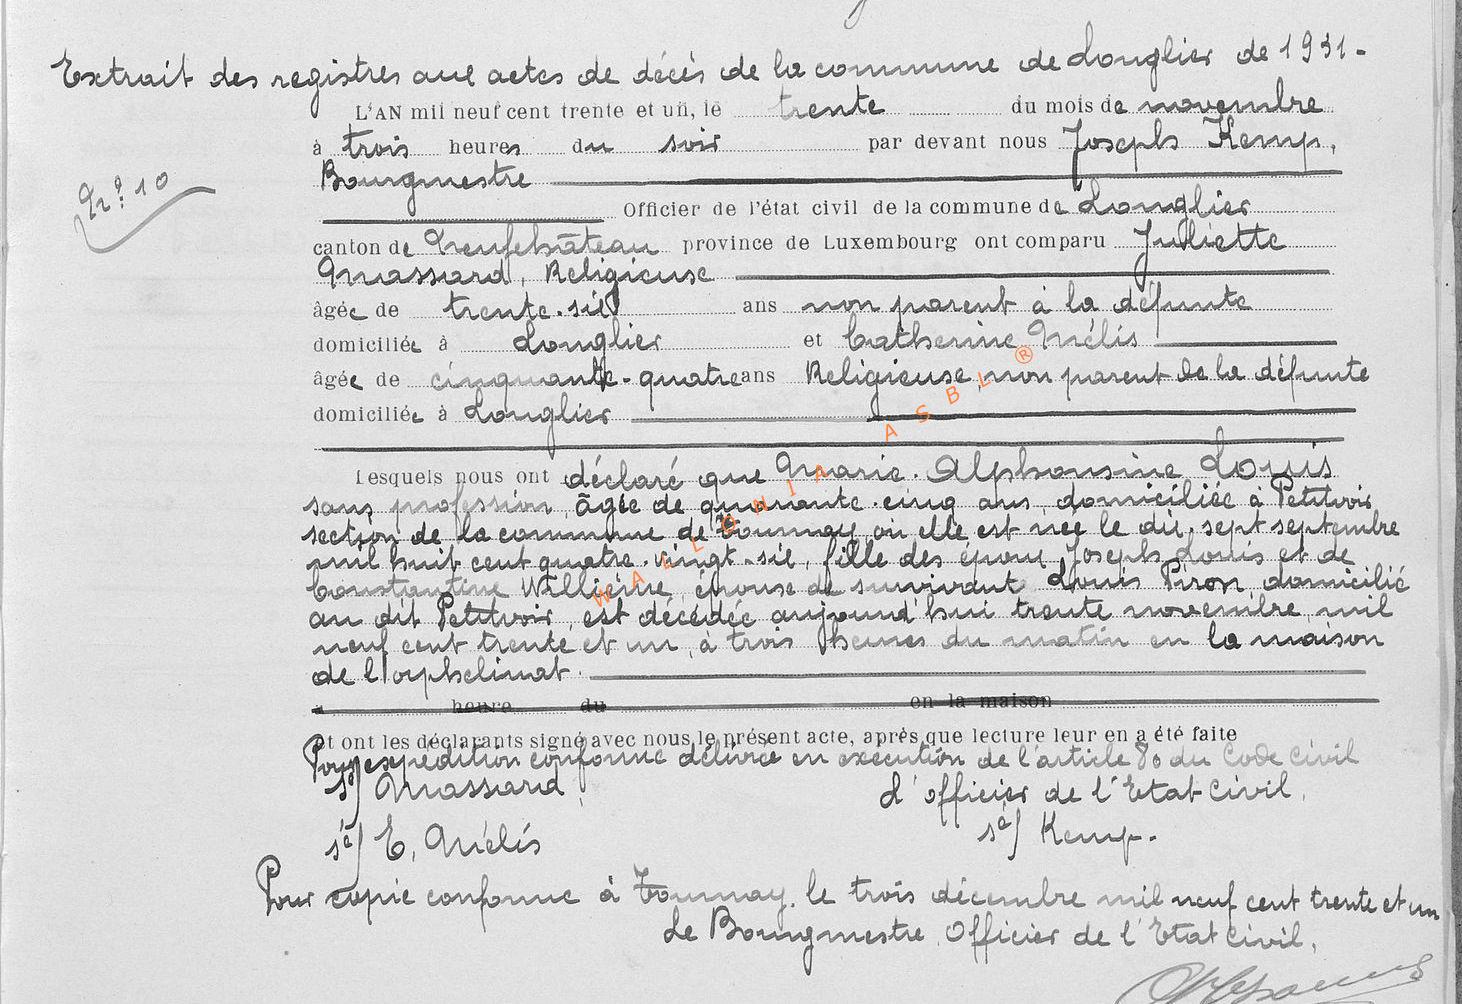 Extrait des registres aux actes de décès de la commune de Longlier de 1931-
L'AN mil neuf cent trente et un, le trente du mois de novembre
à trois heures du soir par devant nous Joseph Kemp,
Bourgmestre
Nº 10
Officier de l'état civil de la commune de Longlier
canton de Neufchâteau province de Luxembourg ont comparu Juliette
Massard, Religieuse
âgée de trente-six ans non parent à la défunte
domiciliée à Longlier et Catherine Mélis
âgée de cinquante-quatre ans Religieuse, non parent de la défunte
domiciliée à Longlier
Lesquels nous ont déclaré que Marie-Alphonsine Louis
sans profession, âgée de quarante-cinq ans, domiciliée à Petitvoir
section de la commune de Tournay, où elle est née le dix-sept septembre
mil huit cent quatre-vingt-six, fille des époux Joseph Louis et de
Constantine Willième, épouse de survivant Louis Piron, domicilié
au dit Petitvoir, est décédée aujourd'hui trente novembre, mil
neuf cent trente et un, à trois heures du matin en la maison
de l'orphelinat.
à heure du en la maison
et ont les déclarants signé avec nous le présent acte, après que lecture leur en a été faite
Pour expédition conforme délivrée en exécution de l'article 80 du Code civil
sé/ Massard, L'officier de l'Etat Civil,
sé/ C. Mélis sé/ Kemp.
Pour copie conforme à Tournay, le trois décembre mil neuf cent trente et un
Le Bourgmestre, Officier de l'Etat Civil,
WALLONIA ASBL ®